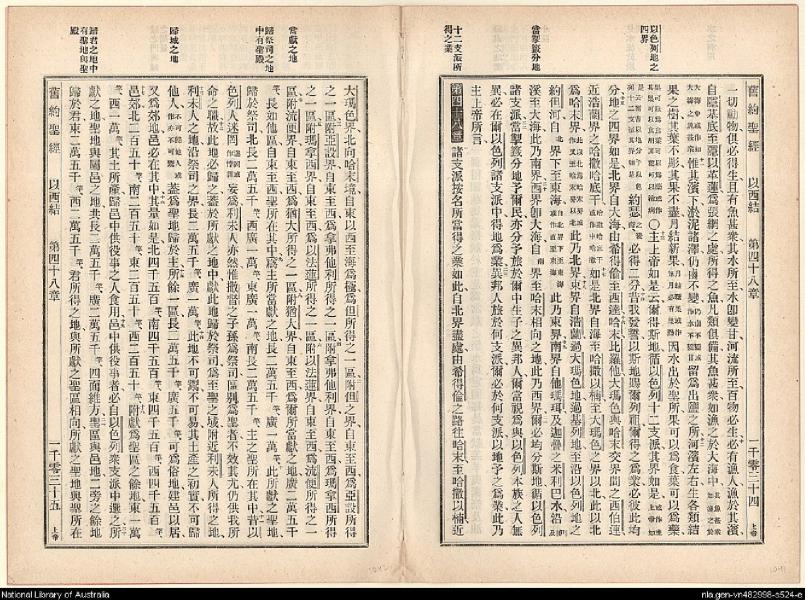 以色列地之
四界
當掣籤分地
十二支派所
得之業
舊約聖經 以西結 第四十八章 一千零三十四 上帝
一切動物俱必得生且有魚甚衆其水所至水卽變甘河流所至百物必生必有漁人漁於其濱
自隱基底至隱以革蓮爲張網之處所得之魚凡類俱備其魚甚衆如漁之於大海中
惟其濱下淤泥諸澤仍鹹不變
留爲出鹽之所河濱左右生各類結
果之樹其葉不彫其果不盡月結新果
因水出於聖所果可以爲食葉可以爲藥
主上帝如是云爾得斯地循以色列十二支派其界如是
約瑟
必得二分昔我發誓以斯地賜爾列祖爾得之爲業必彼此均
分地之四界如是北界自大海由希得倫至西達哈末比羅他大瑪色與哈末交界間之西伯蓮
近浩蘭界之哈撒哈底干
如是北界自海至哈撒以楠至大瑪色之界以北此以北
爲哈末界
此乃北界東界自浩蘭過大瑪色地過基列地至沿以色列地之
約但河自
界下至東海
此乃東界南界自他瑪珥及迦疊之米利巴水沿
溪至大海此乃南界西界卽大海自
界至哈末相向之地此乃西界爾必均分斯地循以色列
諸支派當掣籤分地予爾民亦予旅於爾中生子之異邦人爾當視爲與以色列本族之人無
異必在爾以色列諸支派中得地爲業異邦人旅於何支派爾必於何支派以地予之爲業此乃
主上帝所言
第四十八章 諸支派按名所當得之業如此自北界盡處由希得倫之路往哈末至哈撒以楠近
當獻之地
歸祭司之地
中有聖殿
歸城之地
歸君之地中
有聖地與聖
殿
大瑪色界北向哈末境自東以西至海爲極爲但所得之一區附但之界自東至西爲亞設所得
之一區附亞設界自東至西爲拿弗他利所得之一區附拿弗他利界自東至西爲瑪拿西所得
之一區附瑪拿西界自東至西爲以法蓮所得之一區附以法蓮界自東至西爲流便所得之一
區附流便界自東至西爲猶大所得之一區附猶大界自東至西爲爾所當獻之地廣二萬五千
長如他區自東至西聖所在其中爲主所當獻之地長二萬五千 廣一萬 此所獻之聖地
歸於祭司北長二萬五千 西廣一萬 東廣一萬 南長二萬五千 主之聖所在其中昔以
色列人迷罔
妄爲利未人亦然惟撒督之子孫爲祭司區別爲聖者不效其尤仍供我所
命之職故此地必歸之蓋於所獻之地中獻此地歸於祭司爲至聖之域附近利未人所得之地
利未人之地沿祭司之界長二萬五千 廣一萬 此地不可鬻不可易其土產之初實不可歸
他人
蓋爲聖地歸於主所餘一區長二萬五千 廣五千 可爲俗地建邑以居
又爲郊地邑必在其中其量如是北四千五百 南四千五百 東四千五百 西四千五百
邑郊北二百五十 南二百五十 東二百五十 西二百五十 附獻爲聖區之餘地東一萬
西一萬 其土所產歸邑中供役事之人食用邑中供役事者必自以色列衆支派中選之所
獻之地聖地與屬邑之地共長二萬五千 廣二萬五千 四面維方聖區與邑地二旁之餘地
歸於君東二萬五千 西二萬五千 君所得之地與所獻之聖區相向所獻之聖地與聖所在
舊約聖經 以西結 第四十八章 一千零三十五 上帝
National Library of Australia
nla.gen-vn482998-s524-e